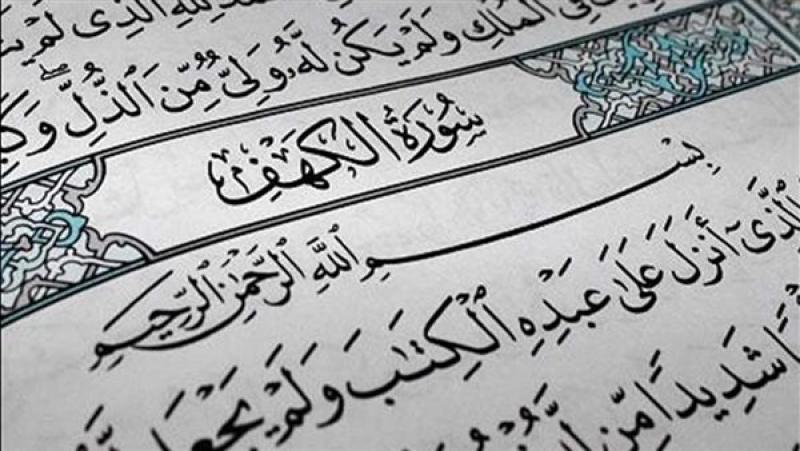 لِلَّهِ ٱلَّذِى لَمْ
فِى ٱلْمُلْكِ وَلَمْ يَكُن لَّهُۥ وَلِىٌّ مِّنَ ٱلذُّلِّ ۖ
سُورَةُ الكَهْفِ
بِسْمِ ٱللَّهِ ٱلرَّحْمَٰنِ ٱلرَّحِيمِ
ٱلَّذِىٓ أَنزَلَ عَلَىٰ عَبْدِهِ ٱلْكِتَٰبَ وَلَمْ يَجْعَل
شَدِيدًا مِّن